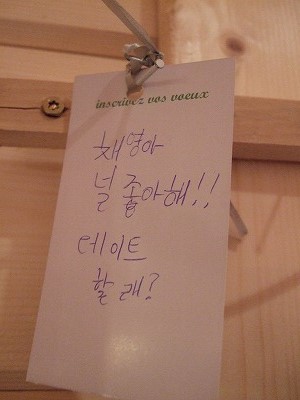 inscrivez vos voeux
채영아
널 좋아해!!
데이트
할래?